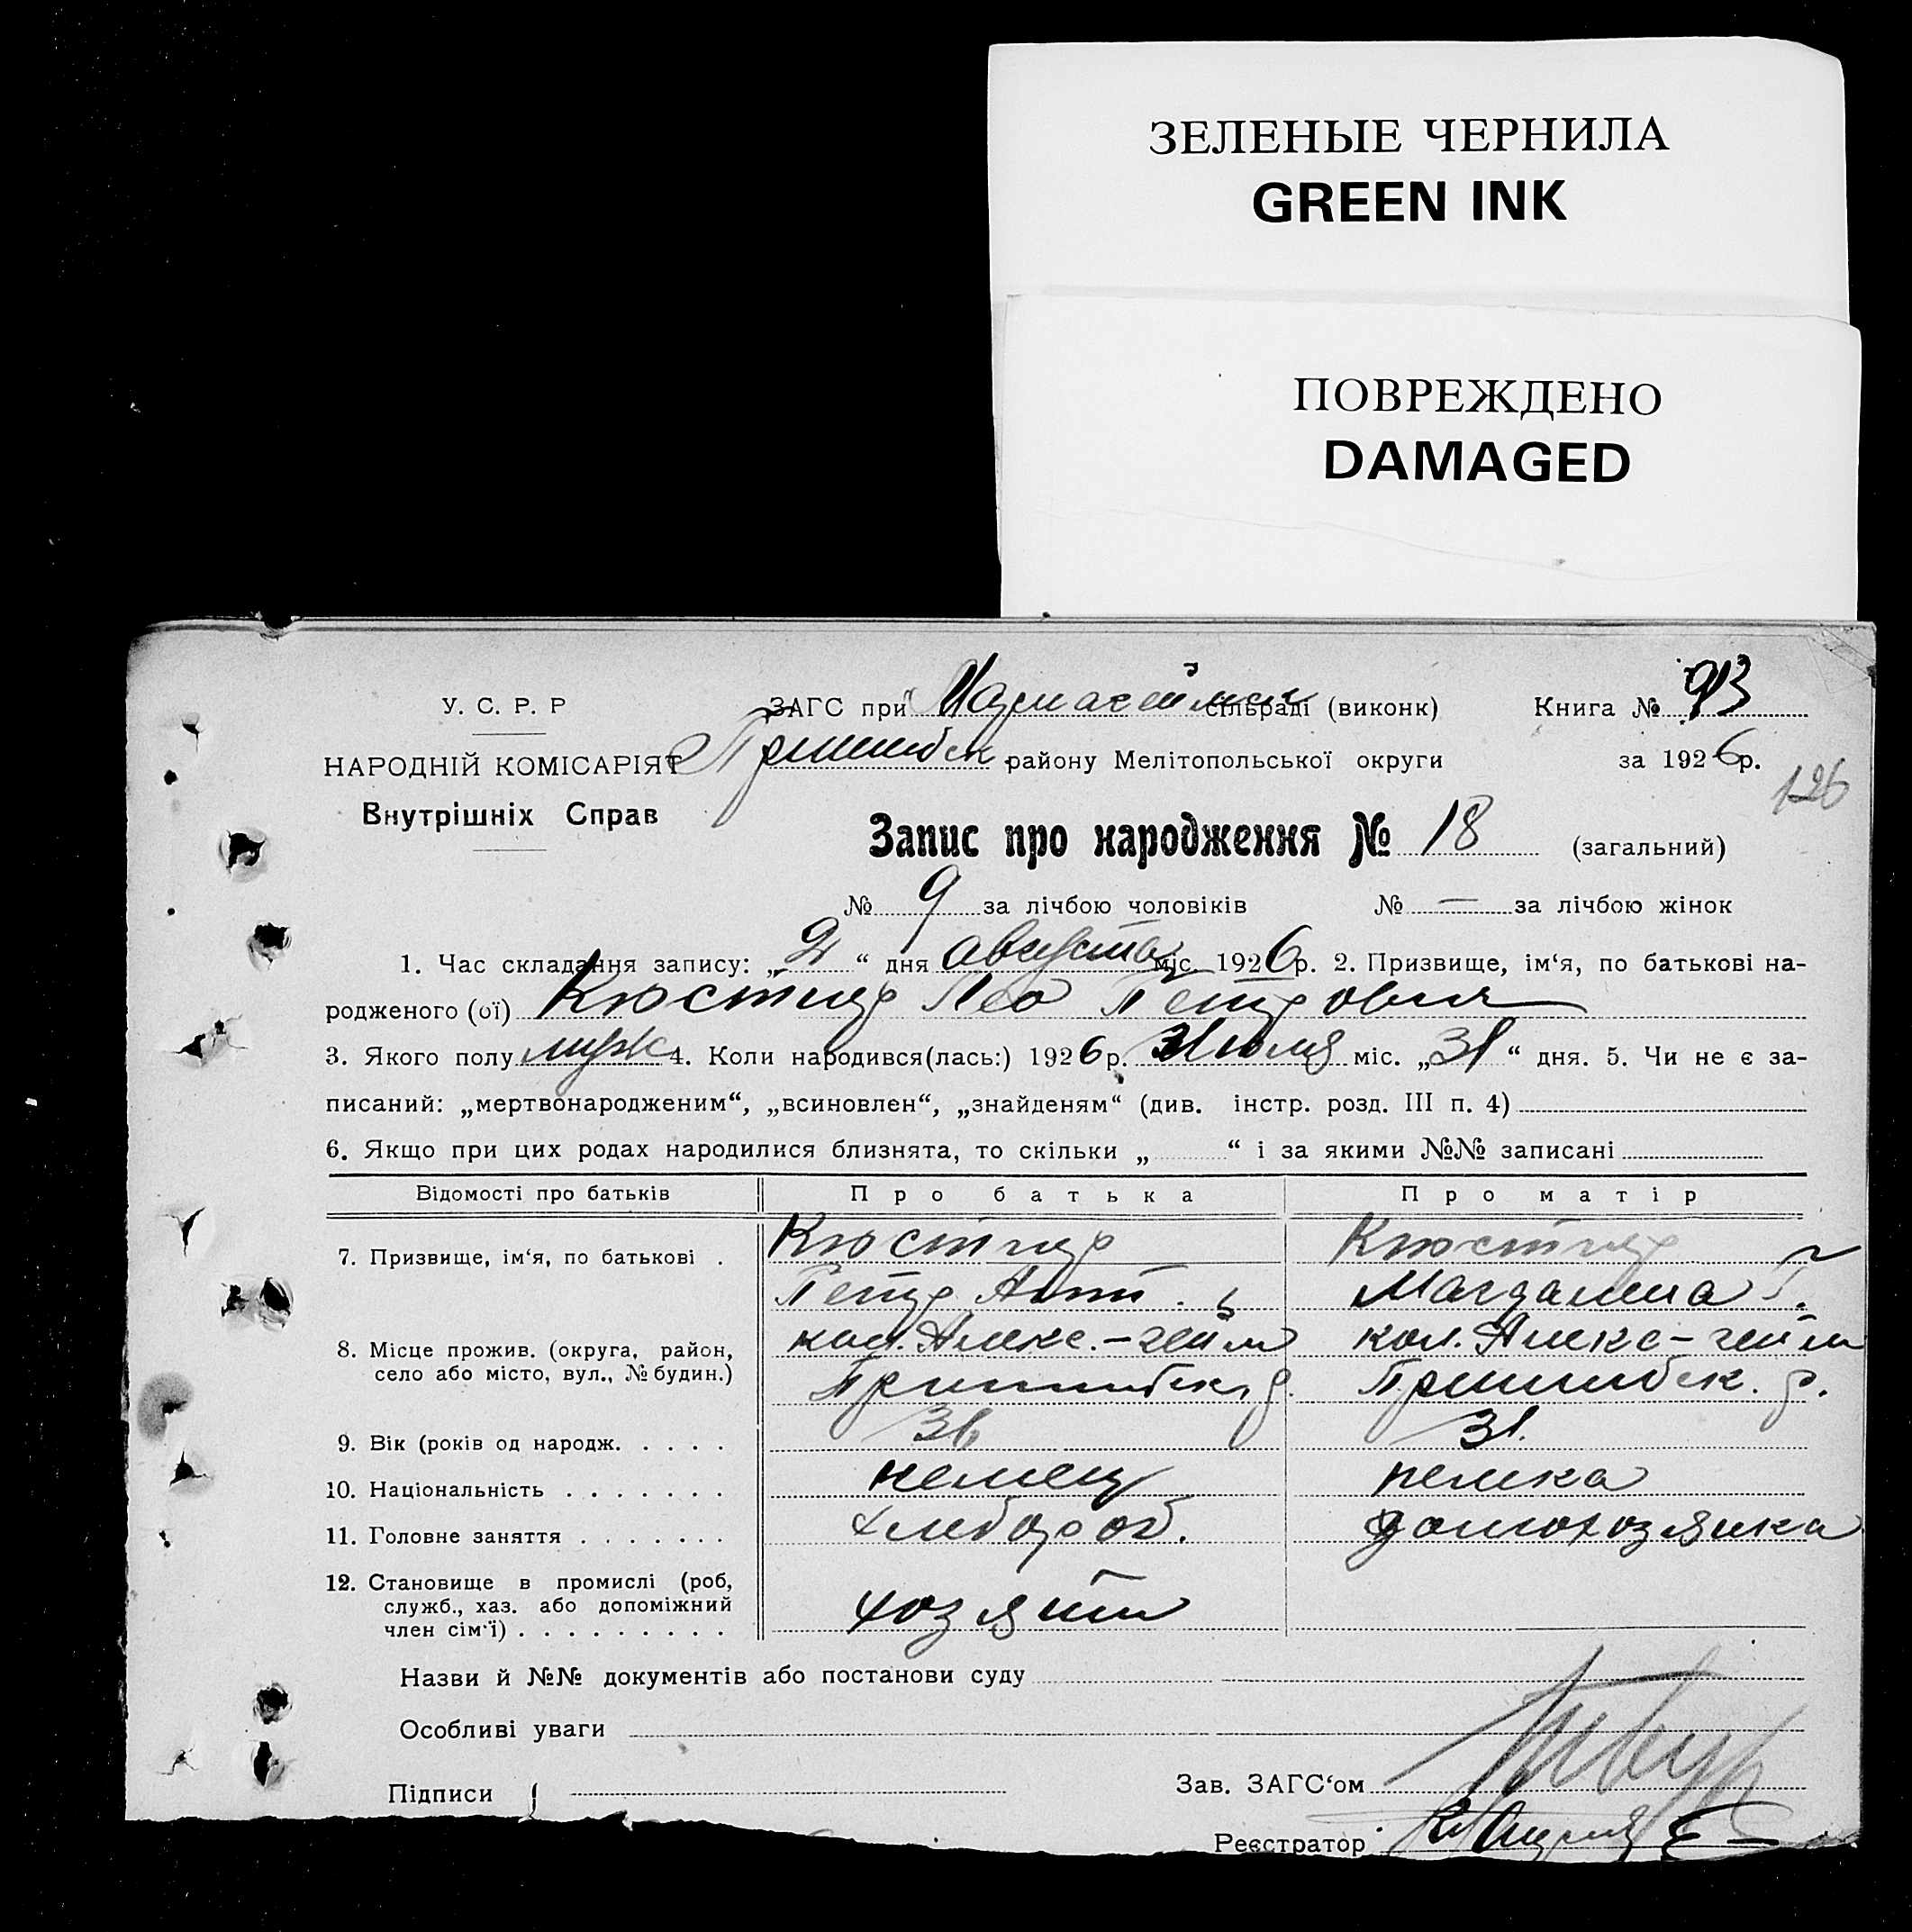 ЗЕЛЕНЫЕ ЧЕРНИЛА
GREEN INK
ПОВРЕЖДЕНО
DAMAGED
У. С. Р. Р
ЗАГС при сільраді (виконк) Книга № 93
НАРОДНІЙ КОМІСАРІЯТ
Пришибск району Мелітопольської округи за 1926р.
126
Внутрішніх Справ
Запис про народження № 18 (загальний)
№ 9 за лічбою чоловіків № — за лічбою жінок
1. Час складання запису: „2“ дня августа міс. 1926р. 2. Призвище, ім‘я, по батькові на-
родженого (ої) Кюстнер Лео Петрович
3. Якого полу муж 4. Коли народився(лась:) 1926р. Июля міс. „31“ дня. 5. Чи не є за-
писаний: „мертвонародженим“, „всиновлен“, „знайденям“ (див. інстр. розд. III п. 4)
6. Якщо при цих родах народилися близнята, то скільки „ “ і за якими №№ записані
Відомості про батьків Про батька Про матір
7. Призвище, ім‘я, по батькові . Кюстнер Кюстнер
Петр Ант. Магдалина Г.
8. Місце прожив. (округа, район, кол. Алекс.-гейм кол. Алекс-гейм
село або місто, вул., № будин.) Пришибск. р. Пришибск. р.
9. Вік (років од народж. . . . . 31.
10. Національність . . . . . . . немец немка
11. Головне заняття . . . . . . . хлебороб. домохозяйка
12. Становище в промислі (роб, хозяин
служб., хаз. або допоміжний
член сім‘ї) . . . . . . . . .
Назви й №№ документів або постанови суду
Особливі уваги
Підписи {
Зав. ЗАГС‘ом
Реєстратор